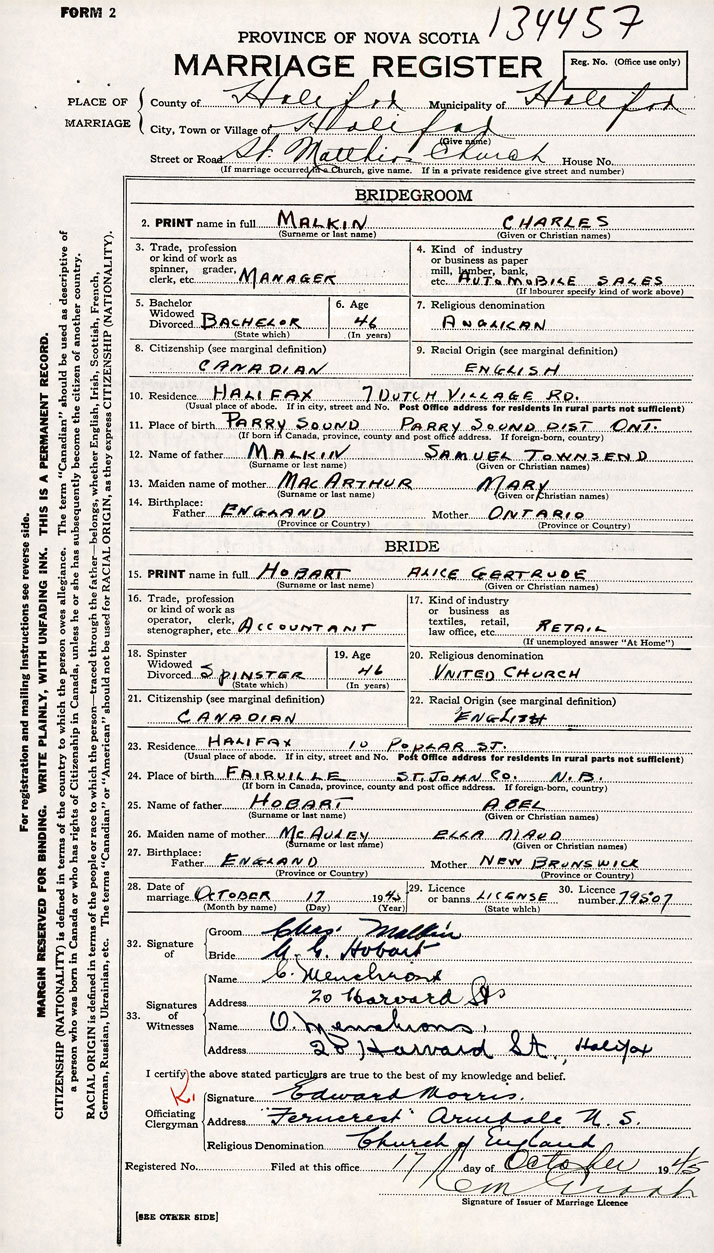 FORM 2
134457
PROVINCE OF NOVA SCOTIA
MARRIAGE REGISTER
Reg. No. (Office use only)
PLACE OF MARRIAGE
County of Halifax Municipality of Halifax
City, Town or Village of Halifax
(Give name)
Street or Road St. Matthias Church House No.
(If marriage occurred in a Church, give name. If in a private residence give street and number)
BRIDEGROOM
2. PRINT name in full MALKIN CHARLES
(Surname or last name) (Given or Christian names)
3. Trade, profession
or kind of work as
spinner, grader,
clerk, etc. MANAGER
4. Kind of industry
or business as paper
mill, lumber, bank,
etc. AUTOMOBILE SALES
(If labourer specify kind of work above)
5. Bachelor
Widowed
Divorced BACHELOR
(State which)
6. Age
46
(In years)
7. Religious denomination
ANGLICAN
8. Citizenship (see marginal definition)
CANADIAN
9. Racial Origin (see marginal definition)
ENGLISH
10. Residence HALIFAX 7 DUTCH VILLAGE RD.
(Usual place of abode. If in city, street and No. Post Office address for residents in rural parts not sufficient)
11. Place of birth PARRY SOUND PARRY SOUND DIST ONT.
(If born in Canada, province, county and post office address. If foreign-born, country)
12. Name of father MALKIN SAMUEL TOWNSEND
(Surname or last name) (Given or Christian names)
13. Maiden name of mother MACARTHUR MARY
(Surname or last name) (Given or Christian names)
14. Birthplace:
Father ENGLAND Mother ONTARIO
(Province or Country) (Province or Country)
BRIDE
15. PRINT name in full HOBART ALICE GERTRUDE
(Surname or last name) (Given or Christian names)
16. Trade, profession
or kind of work as
operator, clerk,
stenographer, etc. ACCOUNTANT
17. Kind of industry
or business as
textiles, retail,
law office, etc. RETAIL
(If unemployed answer "At Home")
18. Spinster
Widowed
Divorced SPINSTER
(State which)
19. Age
46
(In years)
20. Religious denomination
UNITED CHURCH
21. Citizenship (see marginal definition)
CANADIAN
22. Racial Origin (see marginal definition)
ENGLISH
23. Residence HALIFAX 10 POPLAR ST.
(Usual place of abode. If in city, street and No. Post Office address for residents in rural parts not sufficient)
24. Place of birth FAIRVILLE ST. JOHN CO. N.B.
(If born in Canada, province, county and post office address. If foreign-born, country)
25. Name of father HOBART ABEL
(Surname or last name) (Given or Christian names)
26. Maiden name of mother MCAULEY ELLA MAUD
(Surname or last name) (Given or Christian names)
27. Birthplace:
Father ENGLAND Mother NEW BRUNSWICK
(Province or Country) (Province or Country)
28. Date of
marriage OCTOBER 17 1945
(Month by name) (Day) (Year)
29. Licence
or banns LICENSE
(State which)
30. Licence
number 79507
32. Signature of
Groom Chas. Malkin
Bride A. G. Hobart
33. Signatures of Witnesses
Name C.
Address 20 Harvard St
Name O.
Address 20 Harvard St., Halifax
I certify the above stated particulars are true to the best of my knowledge and belief.
Officiating Clergyman
Signature Edward Morris.
Address "Ferncrest" Armdale N. S.
Religious Denomination Church of England
Registered No. Filed at this office 17 day of October 1945
Signature of Issuer of Marriage Licence
[SEE OTHER SIDE]
For registration and mailing instructions see reverse side.
MARGIN RESERVED FOR BINDING. WRITE PLAINLY, WITH UNFADING INK. THIS IS A PERMANENT RECORD.
CITIZENSHIP (NATIONALITY) is defined in terms of the country to which the person owes allegiance. The term "Canadian" should be used as descriptive of
a person who was born in Canada or who has rights of Citizenship in Canada, unless he or she has subsequently become the citizen of another country.
RACIAL ORIGIN is defined in terms of the people or race to which the person—traced through the father—belongs, whether English, Irish, Scottish, French,
German, Russian, Ukrainian, etc. The terms "Canadian" or "American" should not be used for RACIAL ORIGIN, as they express CITIZENSHIP (NATIONALITY).